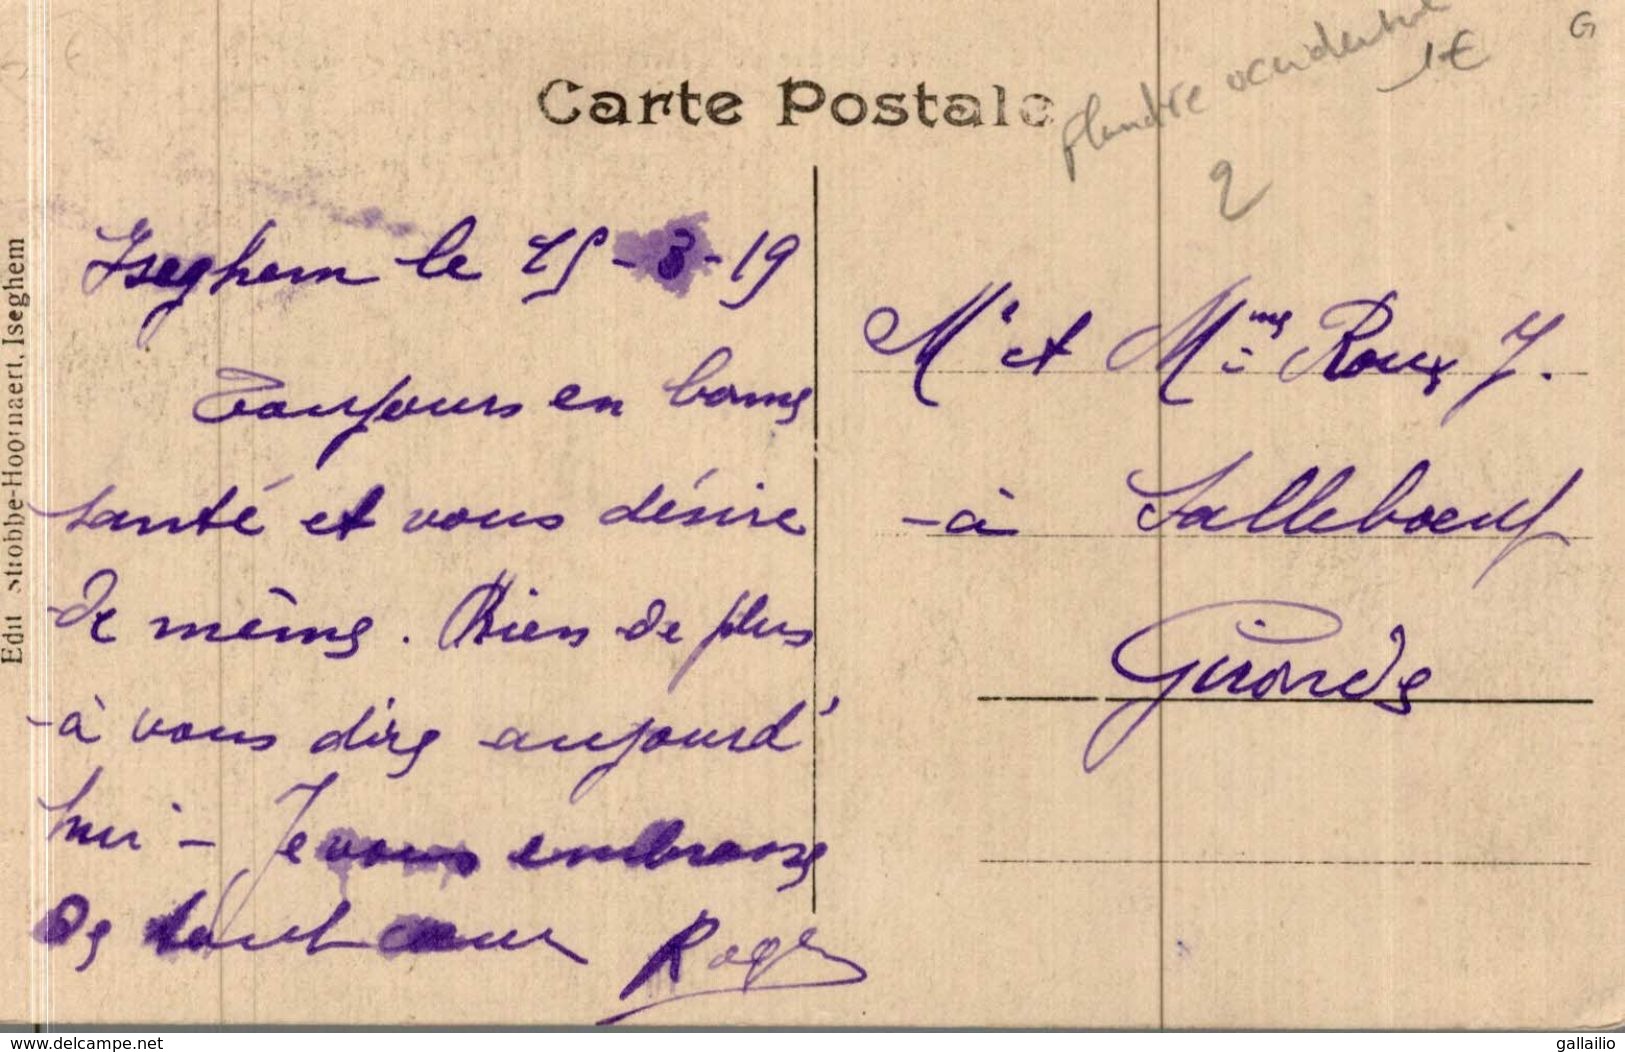 Carte Postale
flandre occidentale
1€
G
2
Edit Strobbe-Hoornaert, Iseghem
Iseghem le 15-3-19
Toujours en bonne
santé et vous désire
de même. Rien de plus
à vous dire aujourd'
hui - Je vous embrasse
de tout cœur Roger
Mr et Mme Roux J.
à Salleboeuf
Gironde
www.delcampe.net
gallailio